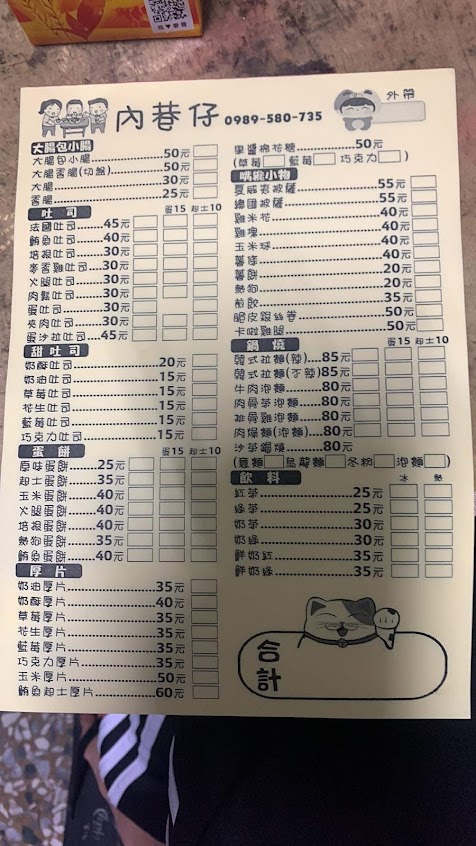 內巷仔 0989-580-735
外帶
大腸包小腸
大腸包小腸 50元
大腸香腸(切盤) 50元
大腸 30元
香腸 25元
吐司 蛋15 起士10
法國吐司 45元
鮪魚吐司 40元
培根吐司 30元
麥香雞吐司 30元
火腿吐司 30元
肉鬆吐司 30元
蛋吐司 30元
夾肉吐司 30元
蛋沙拉吐司 45元
甜吐司
奶酥吐司 20元
奶油吐司 15元
草莓吐司 15元
花生吐司 15元
藍莓吐司 15元
巧克力吐司 15元
蛋餅 蛋15 起士10
原味蛋餅 25元
起士蛋餅 35元
玉米蛋餅 40元
火腿蛋餅 40元
培根蛋餅 40元
熱狗蛋餅 35元
鮪魚蛋餅 40元
厚片
奶油厚片 35元
奶酥厚片 40元
草莓厚片 35元
花生厚片 35元
藍莓厚片 35元
巧克力厚片 35元
玉米厚片 50元
鮪魚起士厚片 60元
果醬棉花糖 50元
(草莓 藍莓 巧克力 )
嘴饞小物
夏威夷披薩 55元
總匯披薩 55元
雞米花 40元
雞塊 40元
玉米球 40元
薯條 40元
薯餅 20元
熱狗 20元
煎餃 35元
脆皮銀絲卷 50元
卡啦雞腿 50元
鍋燒 蛋15 起士10
韓式拉麵(辣) 85元
韓式拉麵(不辣) 85元
牛肉泡麵 80元
肉骨茶泡麵 80元
排骨雞泡麵 80元
肉燥麵(泡麵) 80元
沙茶鍋燒 80元
(意麵 烏龍麵 冬粉 泡麵 )
飲料 冰 熱
紅茶 25元
綠茶 25元
奶茶 30元
奶綠 30元
鮮奶紅 35元
鮮奶綠 35元
合計